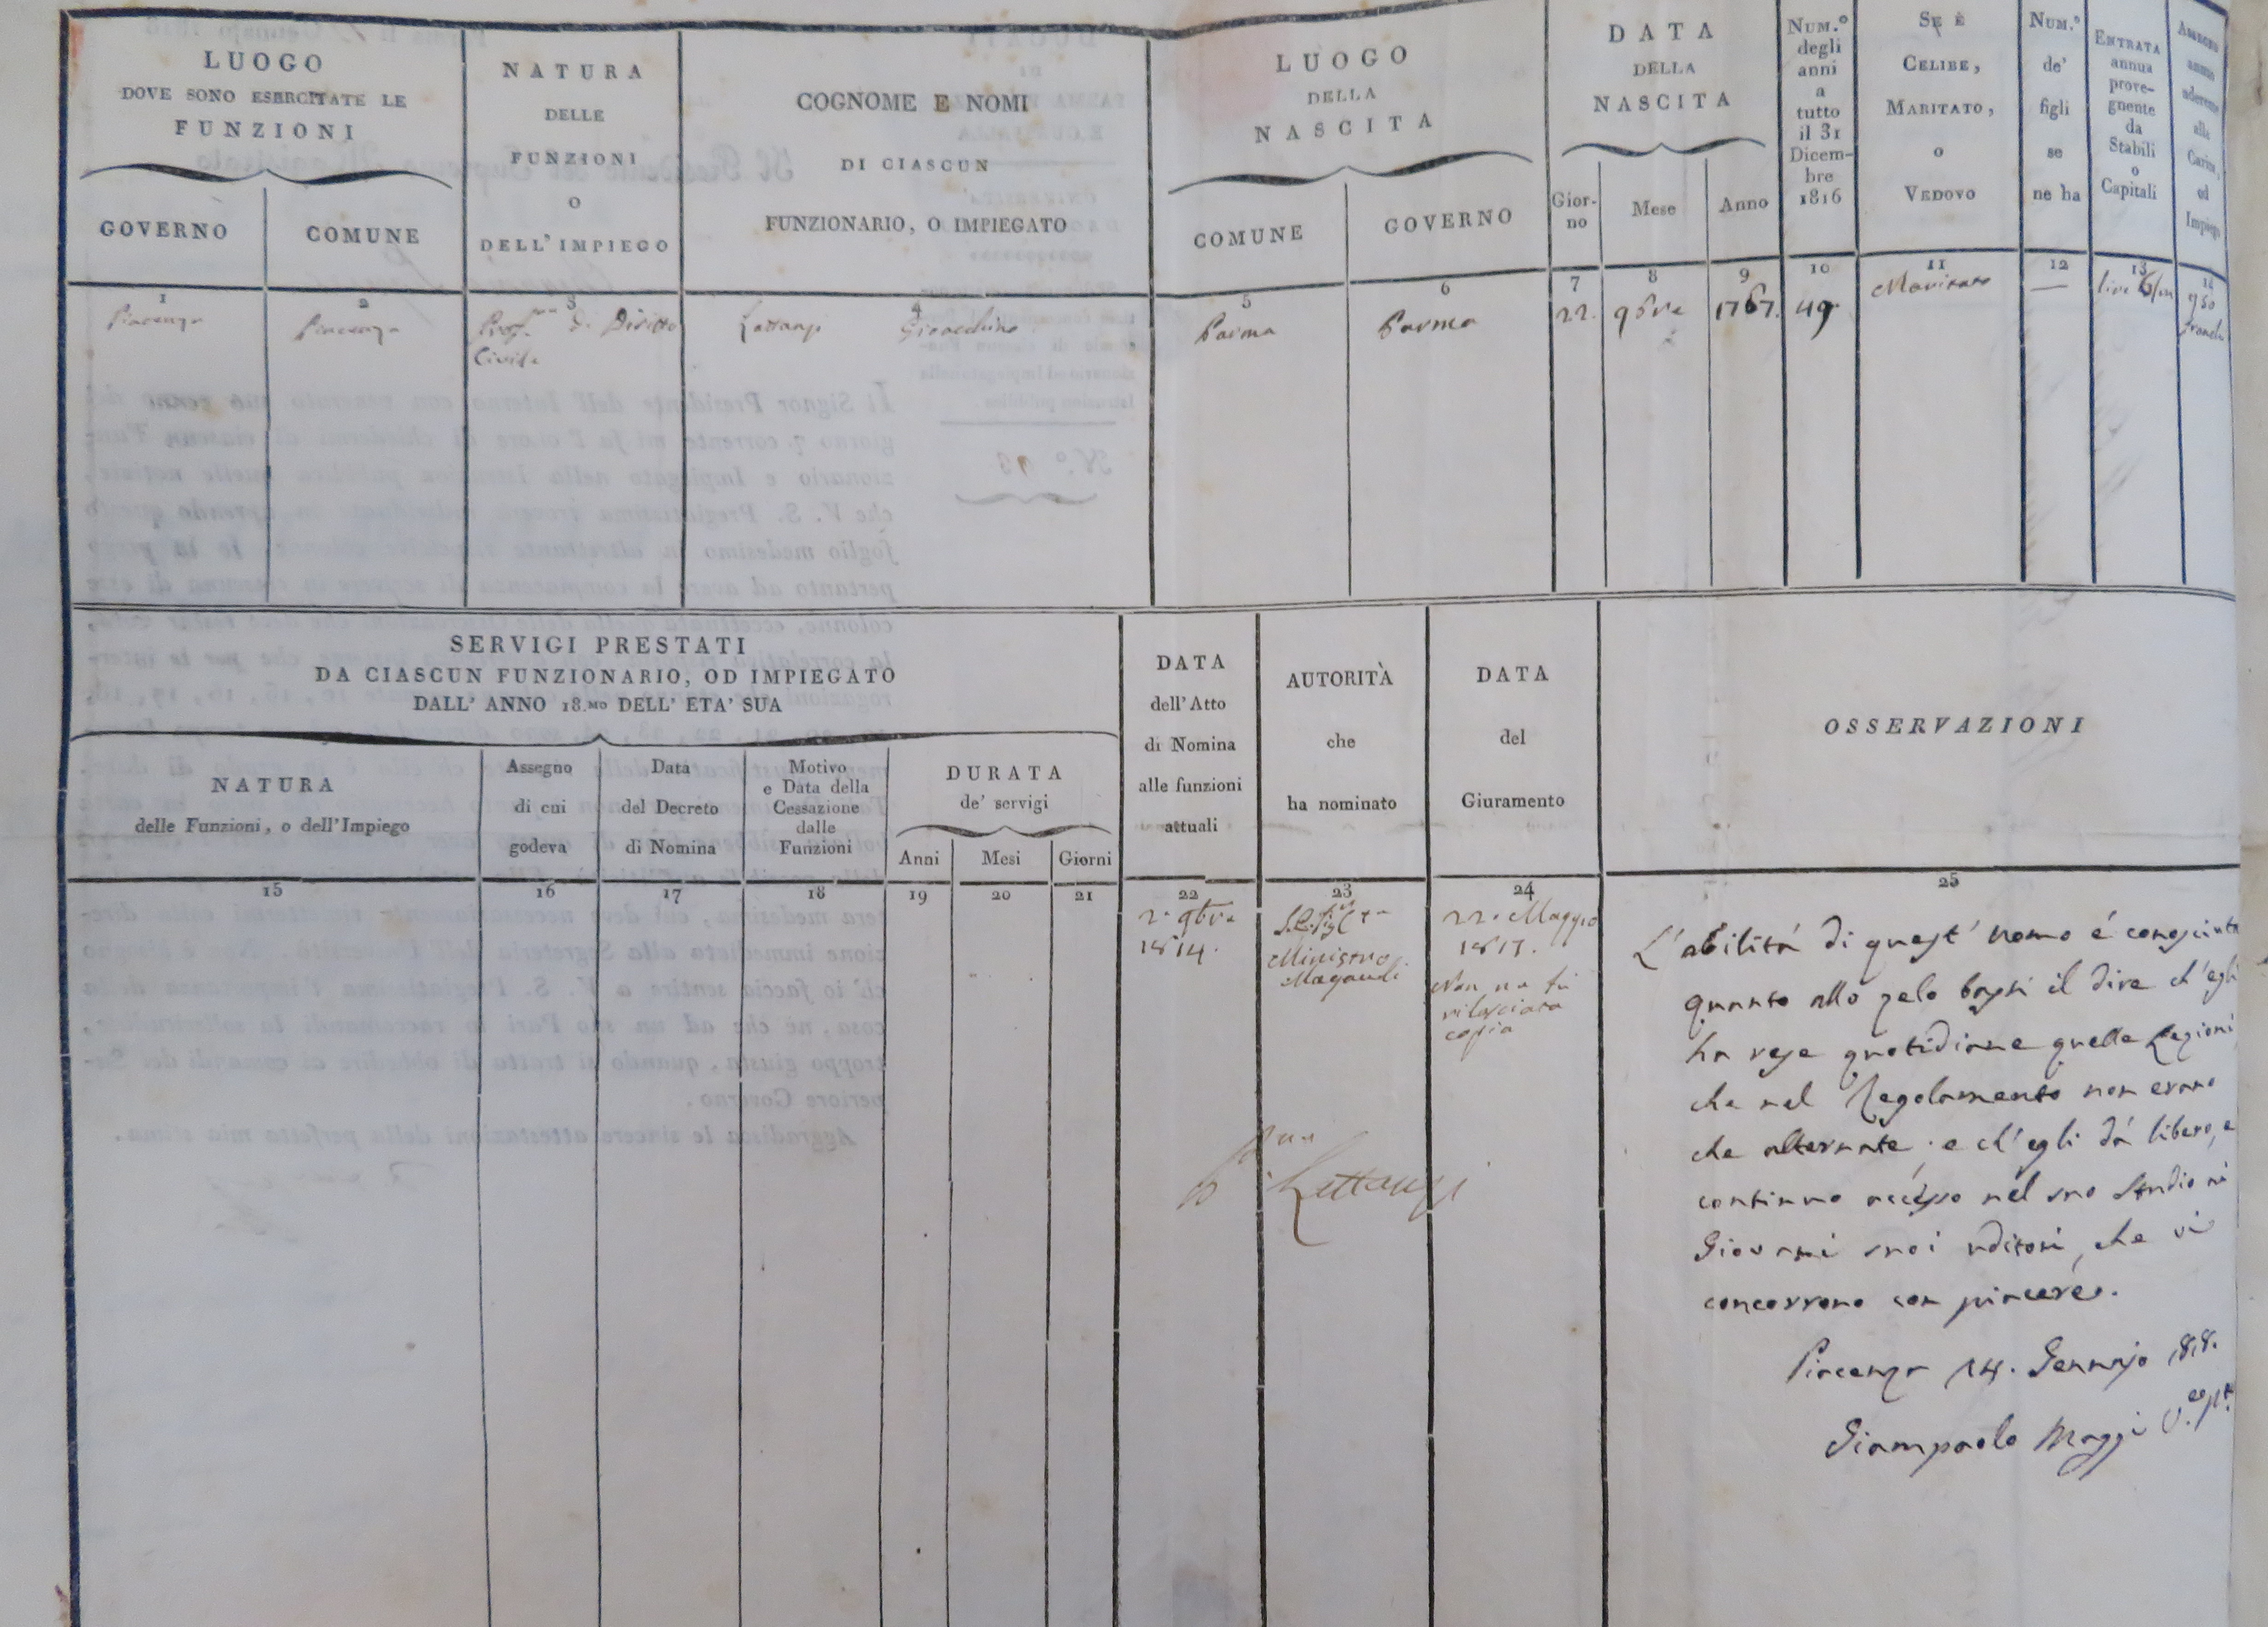 LUOGO
DOVE SONO ESERCITATE LE
FUNZIONI
GOVERNO
COMUNE
NATURA
DELLE
FUNZIONI
O
DELL'IMPIEGO
COGNOME E NOMI
DI CIASCUN
FUNZIONARIO, O IMPIEGATO
LUOGO
DELLA
NASCITA
COMUNE
GOVERNO
DATA
DELLA
NASCITA
Gior-
no
Mese
Anno
NUM.º
degli
anni
a
tutto
il 31
Dicem-
bre
1816
SE È
CELIBE,
MARITATO,
O
VEDOVO
NUM.º
de'
figli
se
ne ha
ENTRATA
annua
prove-
gnente
da
Stabili
o
Capitali
ASSEGNO
annuo
aderente
alla
Carica,
od
Impiego
1 2 3 4 5 6 7 8 9 10 11 12 13 14
Piacenza
Piacenza
Prof. di Diritto
Civile
Lattanzi Gioacchino
Parma
Parma
22. 9bre 1767. 49
Maritato
—
lire
950
franchi
SERVIGI PRESTATI
DA CIASCUN FUNZIONARIO, OD IMPIEGATO
DALL' ANNO 18.MO DELL' ETA' SUA
NATURA
delle Funzioni, o dell'Impiego
Assegno
di cui
godeva
Data
del Decreto
di Nomina
Motivo
e Data della
Cessazione
dalle
Funzioni
DURATA
de' servigi
Anni
Mesi
Giorni
DATA
dell'Atto
di Nomina
alle funzioni
attuali
AUTORITÀ
che
ha nominato
DATA
del
Giuramento
OSSERVAZIONI
15 16 17 18 19 20 21 22 23 24 25
2. 9bre
1814.
Ministro
Magawli
22. Maggio
Non ne fu
rilasciata
copia
Lattanzi
L'abilità di quest' uomo é conosciuta
quanto allo zelo basti il dire ch'egli
ha rese quotidiane quelle Lezioni,
che nel Regolamento non erano
che alternate; e ch'egli dà libero, e
continuo accesso nel suo Studio ai
Giovani suoi uditori, che vi
concorrono con piacere.
Piacenza 14. Gennajo 1818.
Giampaolo Maggi